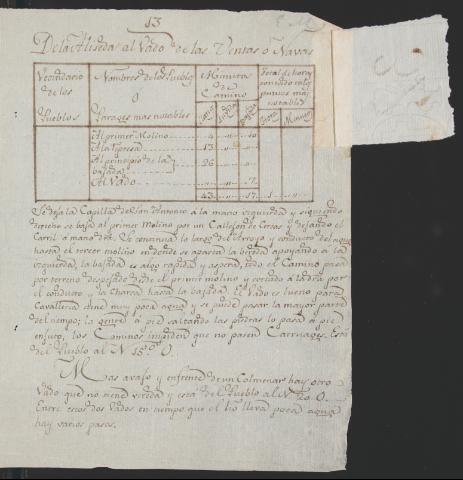 13
De la Aliseda al Vado de las Ventas o Navas
Vecindario de los Pueblos
Nombres de los Pueblos o Parages mas notables
Minutos de Camino
Total de horas contando
puntos mas notables
Horas Minutos
Al primer Molino 4 " 10
A la Represa 13
Al principio de la bajada 26 " "
Al Vado " " 7
43 " 17 1 "
Se deja la Capilla de San Antonio a la mano izquierda y siguiendo
derecho se baja al primer Molino por un Callejon de Cercas y dejando el
Carril a mano dra. Se continua lo largo del Arroyo y conducto del agua
hasta el tercer molino en donde se aparta la bereda apoyando a la
izquierda, la bajada es algo rapida y aspera, todo el Camino pasa
por terreno despejado desde el primer molino y cortado a la dra por
el conducto y la Charca hasta la bajada. El Vado es bueno para
Cavalleria tiene muy poca agua y se puede pasar la mayor parte
del tiempo; la gente a pie saltando las piedras lo pasa a pie
enjuto, los Caminos impiden que no pasen Carruages. Esta
del Pueblo al N 15º O.
Mas avajo y enfrente de un Colmenar hay otro
Vado que no tiene vereda y esta del Pueblo al N. 20. O.
Entre estos dos Vados en tiempo que el Rio lleva poca agua
hay varios pasos.